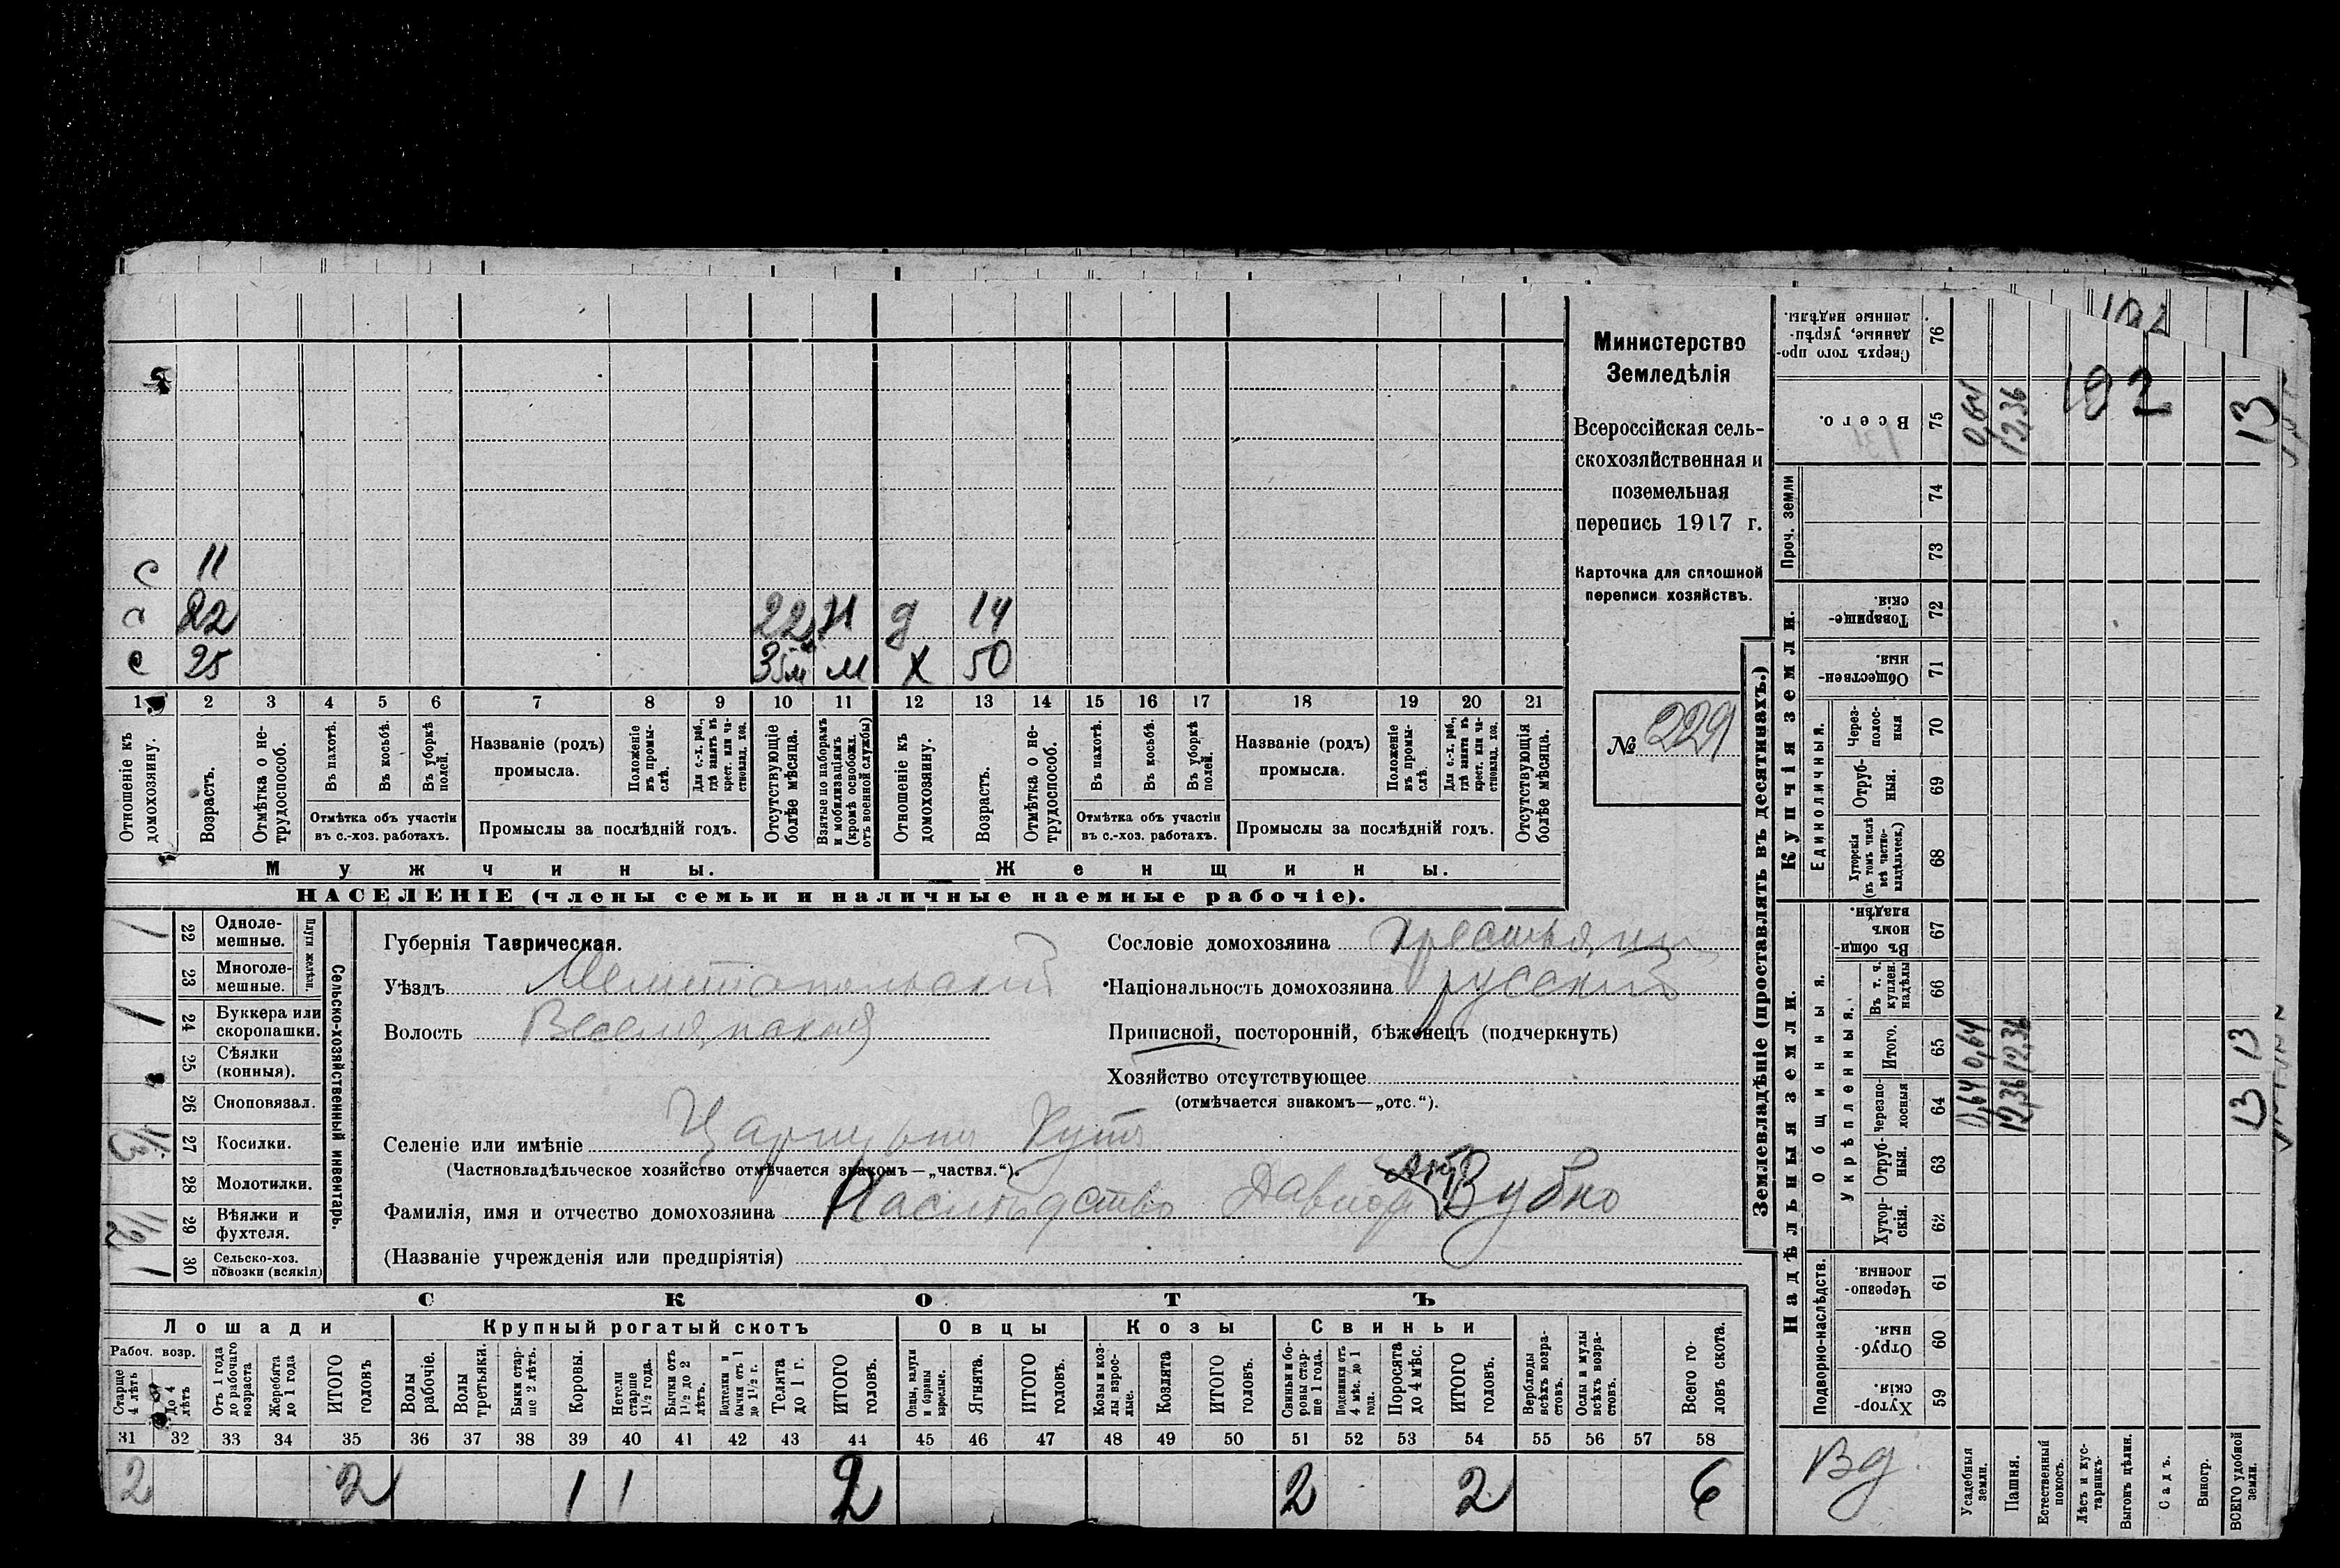 с 11
с 22 22 м д 14
с 25 35 м м х 50
1 2 3 4 5 6 7 8 9 10 11 12 13 14 15 16 17 18 19 20 21
Отношеніе къ домохозяину.
Возрастъ.
Отмѣтка о нетрудоспособ.
Въ пахотѣ.
Въ косьбѣ.
Въ уборкѣ полей.
Отмѣтка объ участіи въ с.-хоз. работахъ.
Названіе (родъ) промысла.
Положеніе въ промыслѣ.
Для с.-х. раб., гдѣ занятъ въ крест. или частновлад. хоз.
Промыслы за послѣдній годъ.
Отсутствующіе болѣе мѣсяца.
Взятые по наборамъ и мобилизаціямъ (кромѣ освобожд. отъ военной службы)
Отношеніе къ домохозяину.
Возрастъ.
Отмѣтка о нетрудоспособ.
Въ пахотѣ.
Въ косьбѣ.
Въ уборкѣ полей.
Отмѣтка объ участіи въ с.-хоз. работахъ.
Названіе (родъ) промысла.
Положеніе въ промыслѣ.
Для с.-х. раб., гдѣ занята въ крест. или частновлад. хоз.
Промыслы за послѣдній годъ.
Отсутствующія болѣе мѣсяца.
Мужчины. Женщины.
НАСЕЛЕНІЕ (члены семьи и наличные наемные рабочіе).
Министерство
Земледѣлія
Всероссійская сель-
скохозяйственная и
поземельная
перепись 1917 г.
Карточка для сплошной
переписи хозяйствъ.
№ 229
Сельско-хозяйственный инвентарь.
Плуги желѣзн.
1 22 Одноле-мешные.
23 Многоле-мешные.
1 24 Буккера или скоропашки.
25 Сѣялки (конныя).
26 Сноповязал.
1/3 27 Косилки.
28 Молотилки.
1/2 29 Вѣялки и фухтеля.
1 30 Сельско-хоз. повозки (всякія)
Губернія Таврическая.
Уѣздъ Мелитопольскій
Волость Веселянская
Селеніе или имѣніе Царицынъ Кутъ
(Частновладѣльческое хозяйство отмѣчается знакомъ—„частвл.“).
Фамилія, имя и отчество домохозяина Наслѣдство Давида Зубко
(Названіе учрежденія или предпріятія)
Сословіе домохозяина крестьянин
Національность домохозяина русскій
Приписной, посторонній, бѣженецъ (подчеркнуть)
Хозяйство отсутствующее
(отмѣчается знакомъ—„отс.“).
СКОТЪ
Лошади Крупный рогатый скотъ Овцы Козы Свиньи
Рабоч. возр.
Старше 4 лѣтъ
До 4 лѣтъ
Отъ 1 года до рабочаго возраста
Жеребята до 1 года
ИТОГО головъ
Волы рабочіе.
Волы третьяки.
Быки старше 2 лѣтъ.
Коровы.
Нетели старше 1½ года.
Бычки отъ 1½ до 2 лѣтъ.
Подтелки и бычки отъ 1 до 1½ г.
Телята до 1 г.
ИТОГО головъ.
Овцы, валухи и бараны взрослые.
Ягнята.
ИТОГО головъ.
Козы и козлы взрослые.
Козлята
ИТОГО головъ.
Свиньи и боровы старше 1 года.
Подсвинки отъ 4 мѣс. до 1 года.
Поросята до 4 мѣс.
ИТОГО головъ.
Верблюды всѣхъ возрастовъ.
Ослы и мулы всѣхъ возрастовъ.
Всего головъ скота.
31 32 33 34 35 36 37 38 39 40 41 42 43 44 45 46 47 48 49 50 51 52 53 54 55 56 57 58
2 2 1 1 2 2 2 6
Землевладѣніе (проставлять въ десятинахъ.)
Сверхъ того проданные, укрѣпленные надѣлы. 76 102
Всего. 75 0,64 12,36 102 13
Проч. земли 74
73
Купчія земли.
Товарищескія. 72
Общественныя. 71
Единоличныя.
Черезполосныя 70
Отрубныя. 69
Хуторскія (въ томъ числѣ всѣ частновладѣльческ.) 68
Надѣльныя земли.
Общинныя.
Въ общинномъ владѣн. 67
Укрѣпленныя.
Въ т. ч. куплен. надѣлы 66
Итого. 65 0,64 12,36 13
Черезполосныя 64 0,64 12,36 13
Отрубныя. 63
Хуторскія. 62
Подворно-наслѣдств.
Черезполосныя. 61
Отрубныя. 60
Хуторскія. 59
Вд.
Усадебныя земли.
Пашня.
Естественный покосъ.
Лѣсъ и кустарникъ.
Выгонъ цѣлин.
Садъ.
Виногр.
ВСЕГО удобной земли.